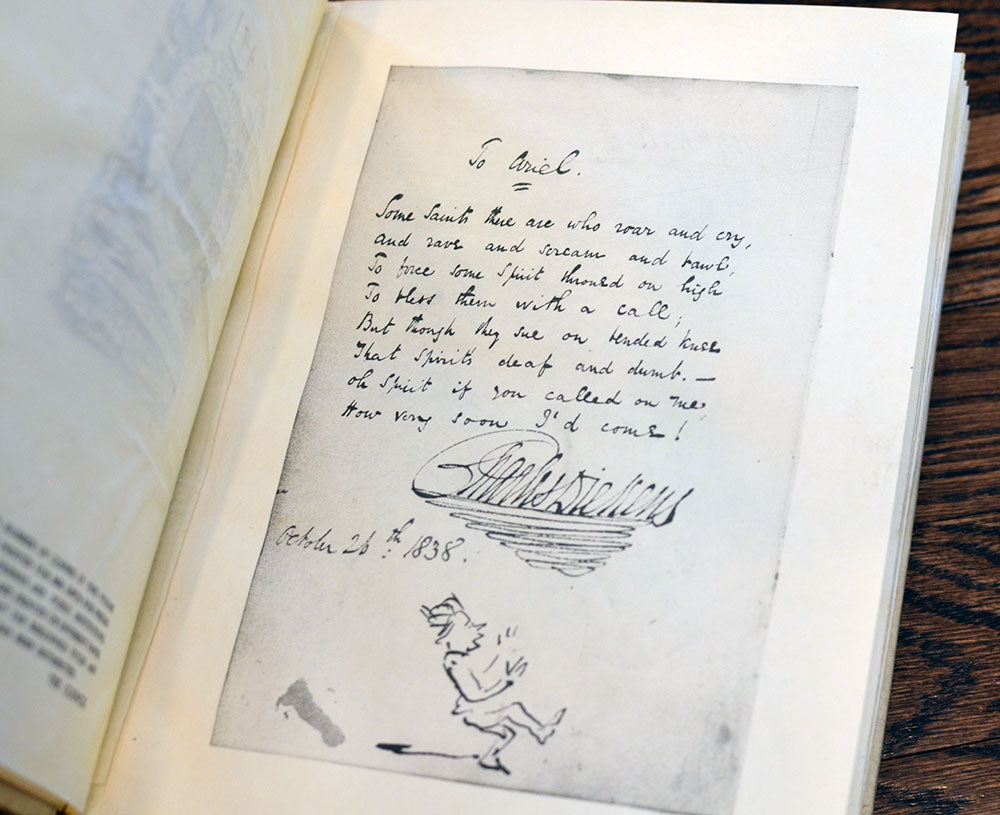 To Ariel.
Some Saints there are who roar and cry,
and rave and scream and bawl,
To force some Spirit throned on high
To bless them with a call;
But though they sue on bended knee
That spirit's deaf and dumb. —
oh Spirit if you called on me,
How very soon I'd come!
Charles Dickens
October 26th 1838.